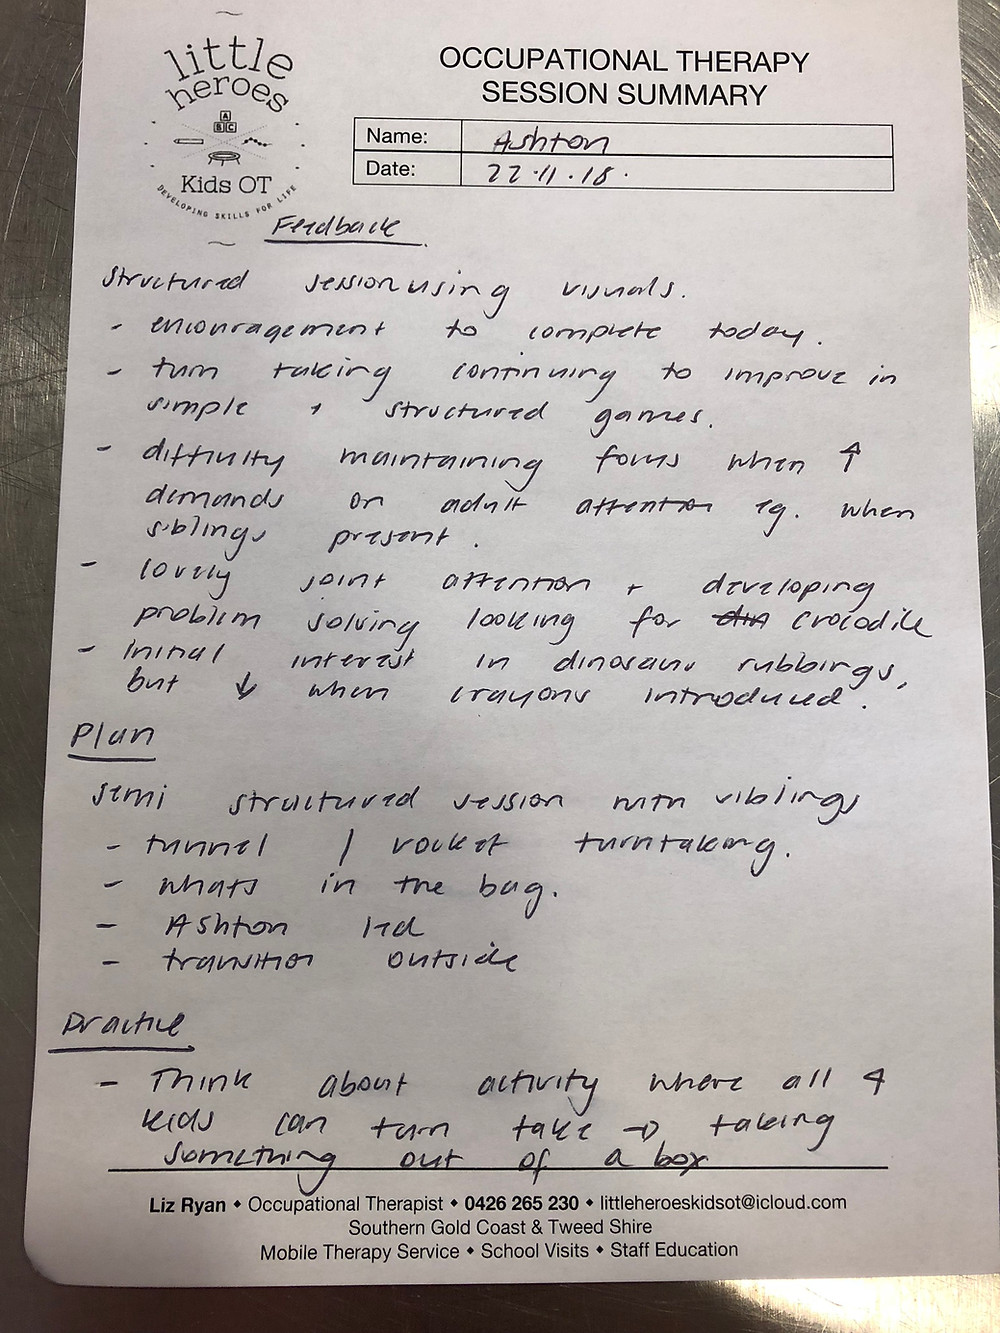 little
heroes
A
B C
Kids OT
DEVELOPING SKILLS FOR LIFE
OCCUPATIONAL THERAPY
SESSION SUMMARY
Name: Ashton
Date: 22.11.18.
Feedback
Structured session using visuals.
- encouragement to complete today.
- turn taking continuing to improve in
simple + structured games.
- difficulty maintaining focus when ↑
demands on adult attention eg. when
siblings present.
- lovely joint attention + developing
problem solving looking for din crocodile
- initial interest in dinosaur rubbings,
but ↓ when crayons introduced.
Plan
semi structured session with siblings
- tunnel / rocket turntaking.
- whats in the bag.
- Ashton led
- transition outside
Practice
- Think about activity where all 4
kids can turn take → taking
something out of a box
Liz Ryan • Occupational Therapist • 0426 265 230 • littleheroeskidsot@icloud.com
Southern Gold Coast & Tweed Shire
Mobile Therapy Service • School Visits • Staff Education